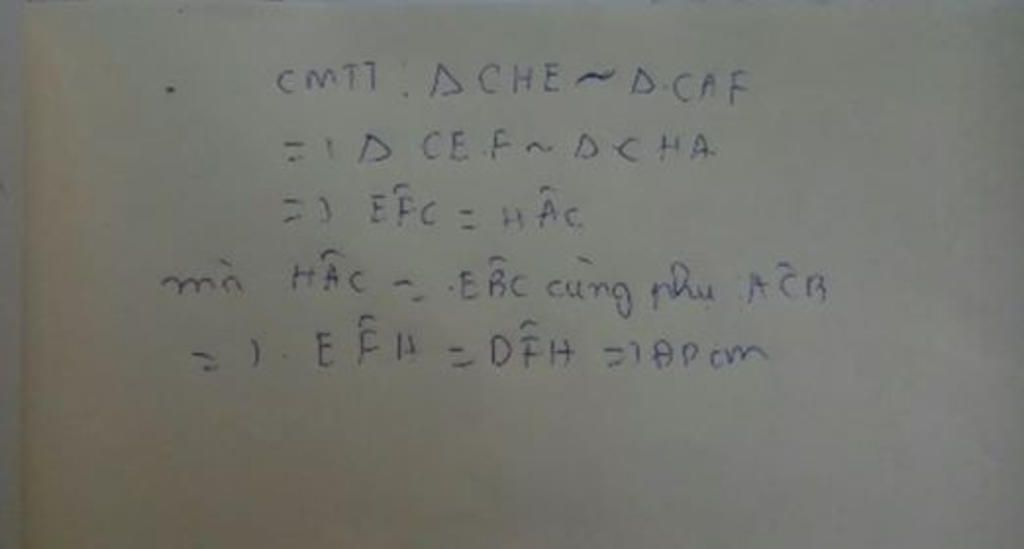 CMTT : Δ CHE ~ Δ.CAF
=) Δ CE.F ~ Δ CHA
=) EF̂C = HÂC
mà HÂC = .EB̂C cùng phụ AĈB
=). EF̂H = DF̂H =) ĐPcm